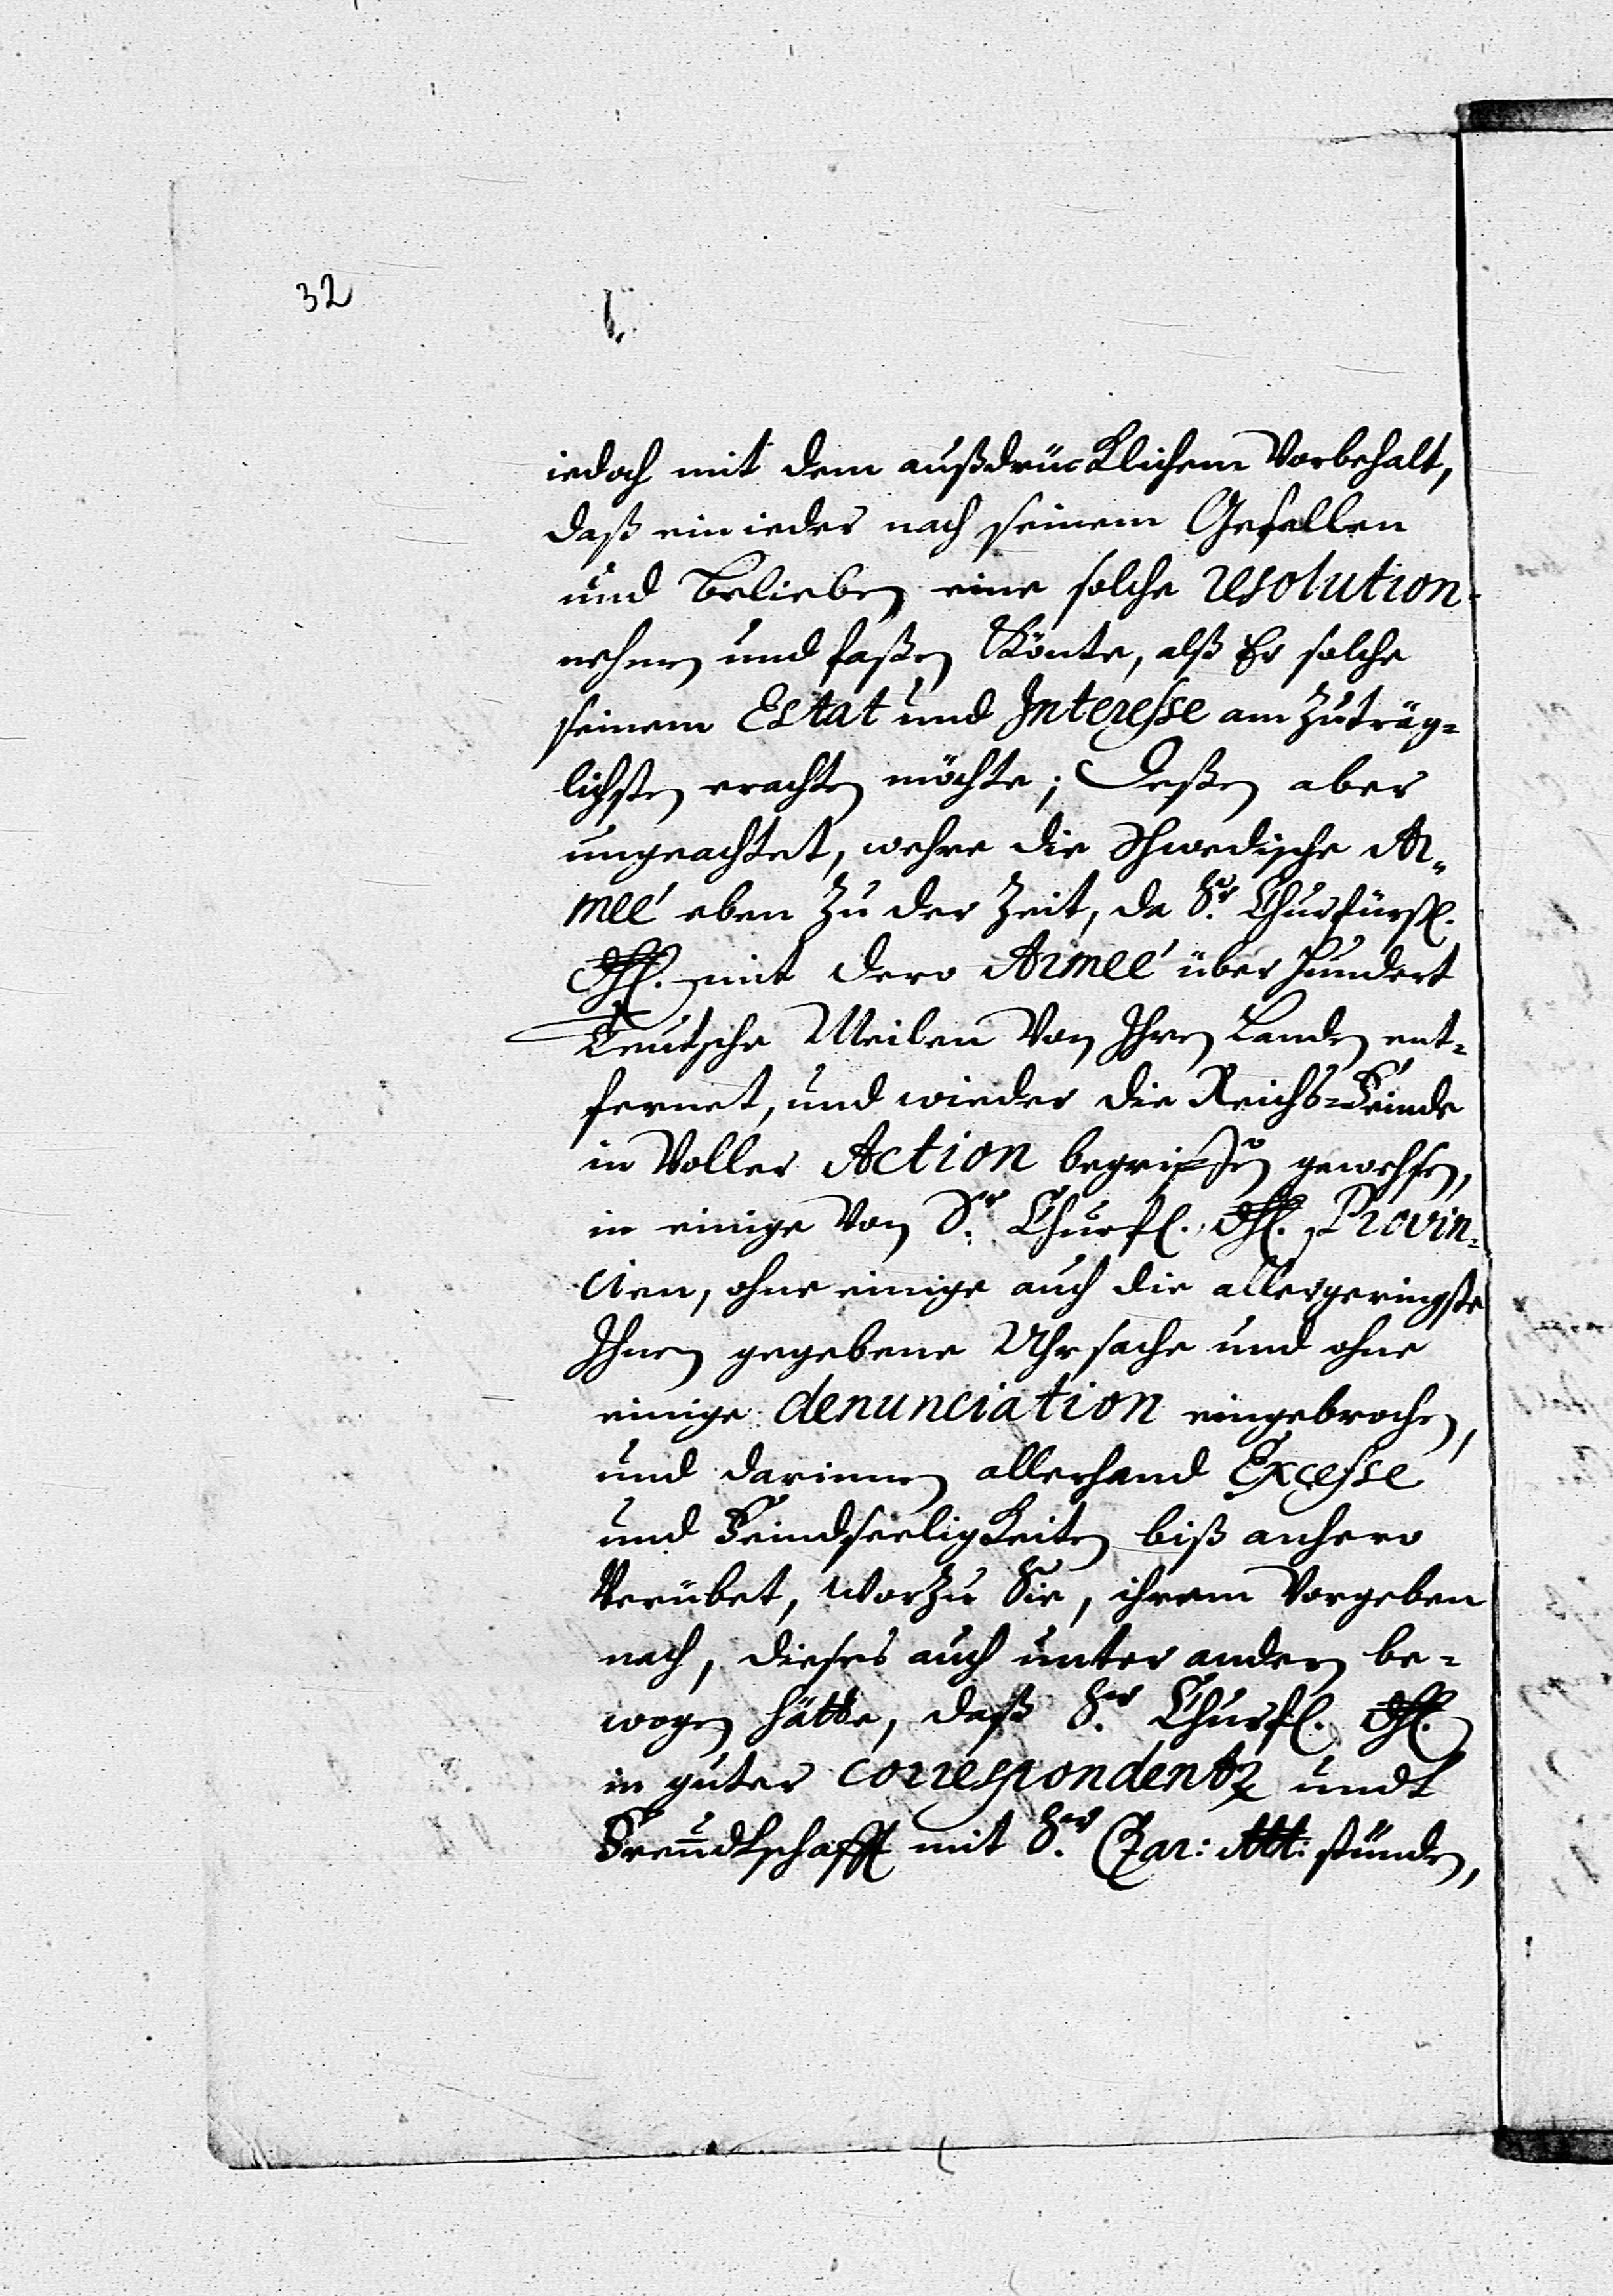 32
iedoch mit dem außdrücklichem Vorbehalt,
daß ein ieder nach seinem Gefallen
und belieben eine solche resolution
nehmen und faßen Könte, alß Er solche
seinem Estat und Interesse am zuträg=
lichsten erachten möchte; Deßen aber
ungeachtet, wehre die Schwedische Ar=
meé eben zu der Zeit, da Sr. Churfürstl.
Dhl. mit dero Armeé über hundert
Teutsche Meilen Von Ihren Landen ent=
fernet, und wieder die Reichs=Feinde
in Voller Action begriffen gewehsen,
in einige Von Sr. Churfl. Dhl. Provin=
cien, ohne einige auch die allergeringste
Ihnen gegebene Uhrsache und ohne
einige denunciation eingebrochen,
und darinnen allerhand Excesse
und Feindseeligkeiten biß anhero
Verübet, worzu Sie, ihrem Vorgeben
nach, dieses auch unter andern be=
wogen hätte, daß Sr. Churfl. Dhl.
in guter correspondentz undt
Freundtschafft mit Sr. Czar: Mt: stünden,